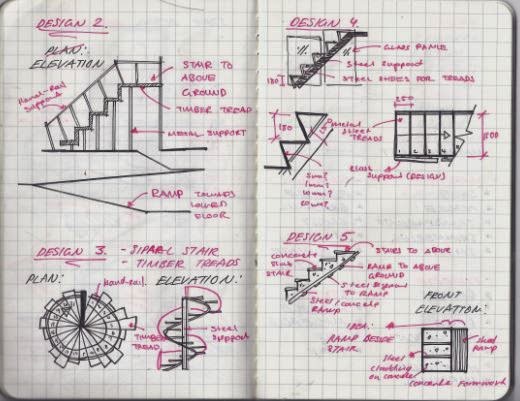 DESIGN 2.
PLAN:
ELEVATION
Hand-Rail
Support
STAIR TO
ABOVE
GROUND
TIMBER TREAD
METAL SUPPORT
RAMP TOWARDS
LOWER
FLOOR
DESIGN 3. - SIPARL STAIR
- TIMBER TREADS
PLAN:
Hand-rail.
ELEVATION:
TIMBER
TREAD
Steel
Support
DESIGN 4.
GLASS PANLE
Steel Support
STEEL SHEES FOR TREADS
180
180
metal
Sheet
TREADS
5mm?
10mm?
20mm?
250
800
Glass
Support (DESIGN)
DESIGN 5.
concrete
STAIR
STAIRS TO ABOVE
RAMP TO ABOVE
GROUND
Steel Support
TO RAMP
Steel/concrete
RAMP
FRONT
ELEVATION:
IDEA:
RAMP BESIDE
STAIR
Steel
Ramp
Steel
cladding
on concrete
Concrete Formwork